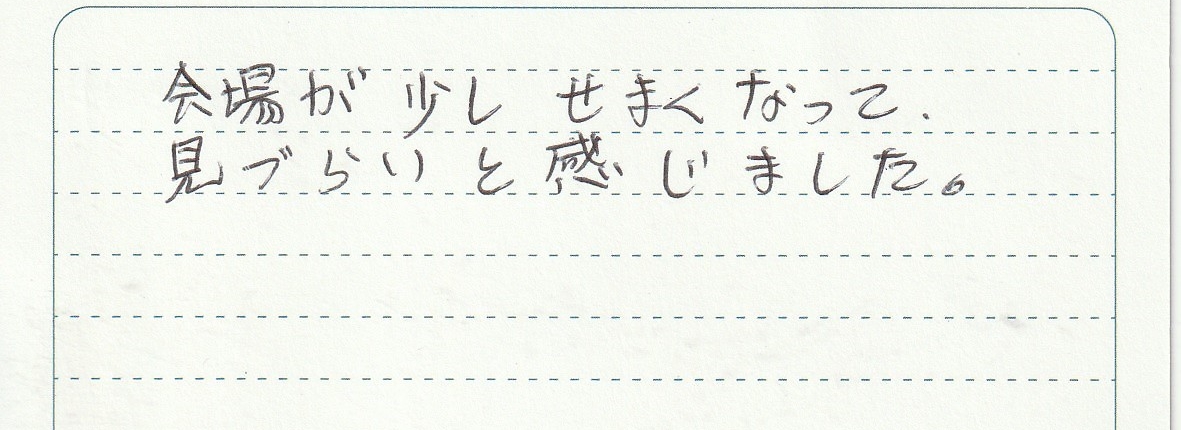 会場が少しせまくなって、
見づらいと感じました。